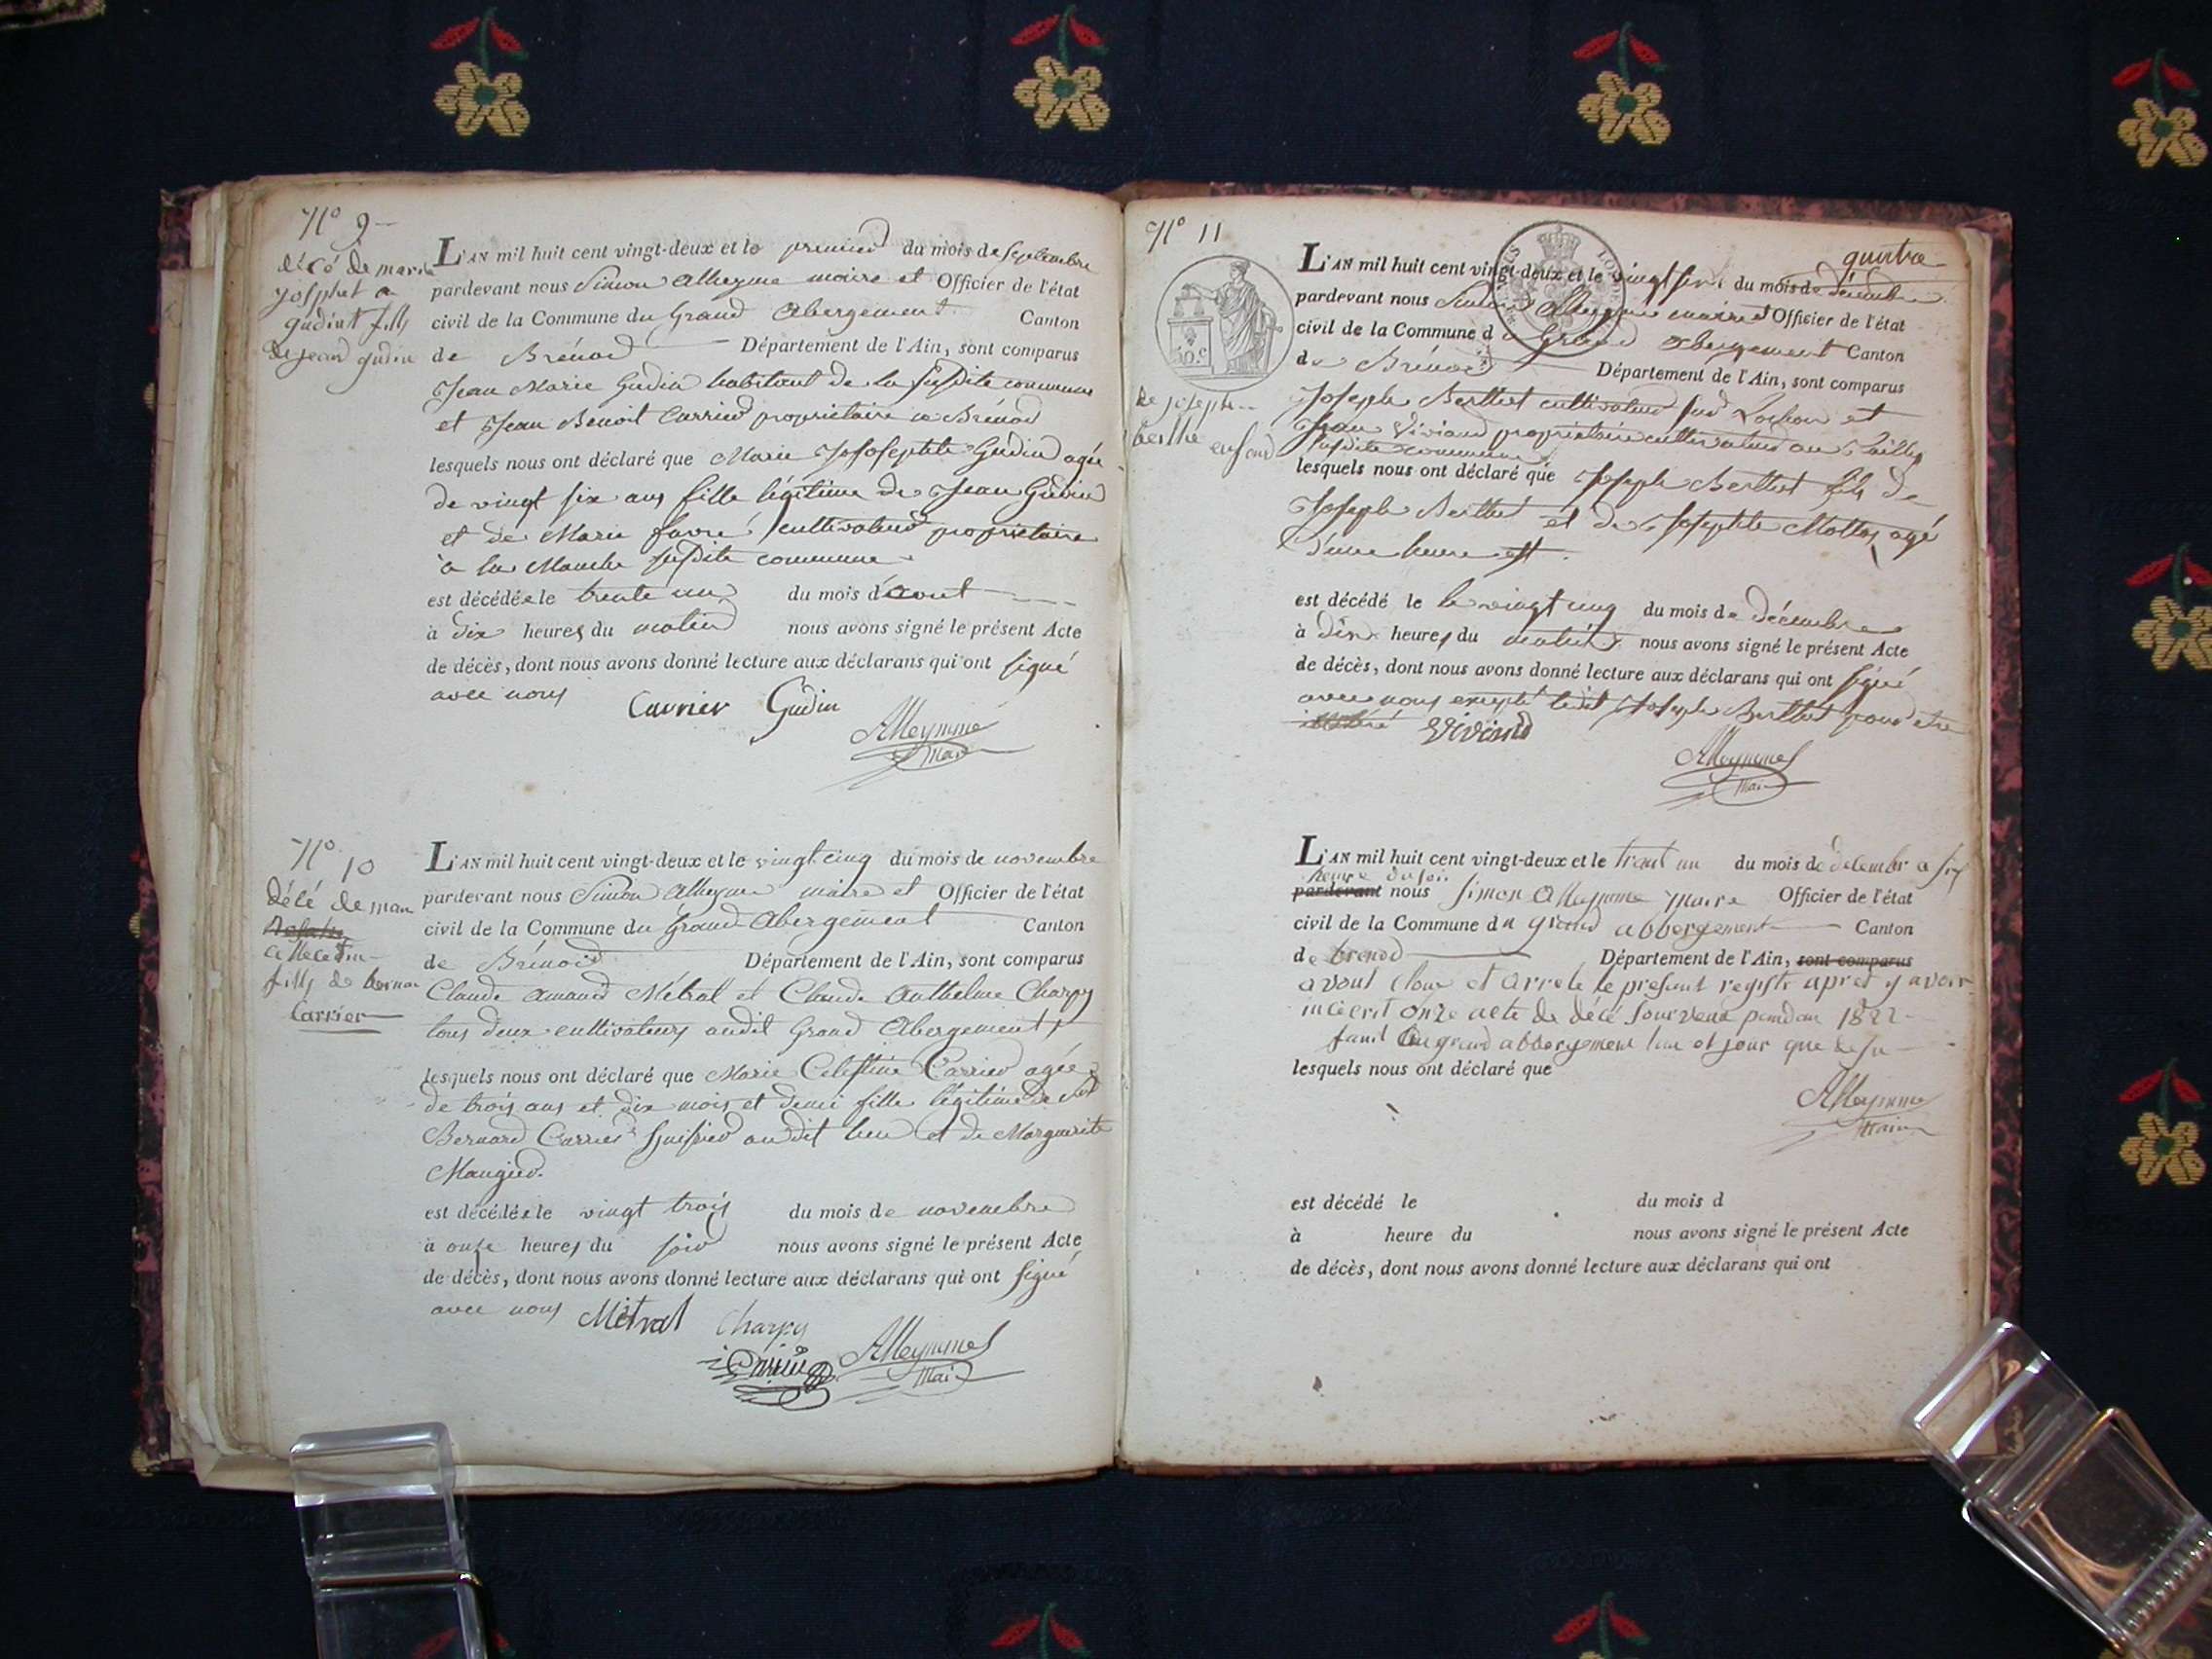 N° 9
décé de marie
josphet a
gudint fill
de jean gudin
L'AN mil huit cent vingt-deux et le premier du mois de Septembre
pardevant nous Simon Alleyme maire et Officier de l'état
civil de la Commune du Grand Abergement Canton
de Brénod Département de l'Ain, sont comparus
Jean Marie Gudin habitant de la susdite commune
et Jean Benoit Carrier proprietaire a Brénod
lesquels nous ont déclaré que Marie Josephte Gudin agée
de vingt six ans fille légitime de Jean Gudin
et de Marie favre cultivateur proprietaire
à la Manche susdite commune
est décédée le trente un du mois d'aout
à dix heures du matin nous avons signé le présent Acte
de décès, dont nous avons donné lecture aux déclarans qui ont signé
avec nous Carrier Gudin
Alleymme
Maire
N° 10
décé de mari
celleestin
fills de bernar
Carrier
L'AN mil huit cent vingt-deux et le vingt cinq du mois de novembre
pardevant nous Simon Alleyme maire et Officier de l'état
civil de la Commune du Grand Abergement Canton
de Brénod Département de l'Ain, sont comparus
Claude Amand Métral et Claude Anthelme Charpy
tous deux cultivateurs audit Grand Abergement
lesquels nous ont déclaré que Marie Celestine Carrier agée
de trois ans et dix mois et demi fille légitime de
Bernard Carrier huissier au dit lieu et de Marguerite
Maugier.
est décédée le vingt trois du mois de novembre
à onze heures du soir nous avons signé le présent Acte
de décès, dont nous avons donné lecture aux déclarans qui ont signé
avec nous Métral Charpy
Carrier Alleymme
Maire
N° 11
quatre
de joseph
berthé enfand
L'AN mil huit cent vingt-deux et le vingt six du mois de décembre
pardevant nous Simon Alleyme maire et Officier de l'état
civil de la Commune d Grand Abergement Canton
de Brénod Département de l'Ain, sont comparus
Joseph Berthet cultivateur sur Rochon et
Jean Viviand proprietaire cultivateur au
susdite commune
lesquels nous ont déclaré que Joseph Berthet fils de
Joseph Berthet et de Josephte Mottaz agé
d'une heure est
est décédé le le vingt cinq du mois de décembre
à dix heures du matin nous avons signé le présent Acte
de décès, dont nous avons donné lecture aux déclarans qui ont signé
avec nous excepté ledit Joseph Berthet pour etre
illitéré Viviand
Alleymme
Maire
L'AN mil huit cent vingt-deux et le trant un du mois de decembr a six
heure du soir
pardevant nous Simon Alleymme maire Officier de l'état
civil de la Commune du grand abbergement Canton
de brenod Département de l'Ain, sont comparus
avont clour et arrete le present registr apret y avoir
inscrit onze acte de décé sourvenu pandan 1822
fait au grand abbergement lan et jour que desu
lesquels nous ont déclaré que
Alleymme
Maire
est décédé le du mois d
à heure du nous avons signé le présent Acte
de décès, dont nous avons donné lecture aux déclarans qui ont